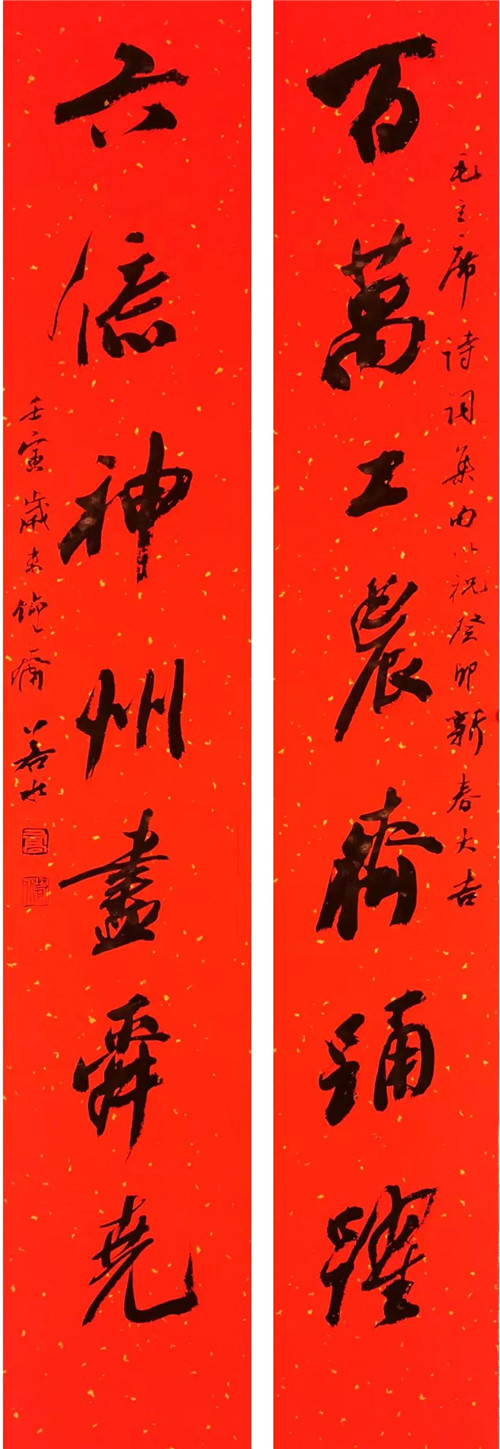 百萬工農齊踊躍
毛主席詩詞集句以祝癸卯新春大吉
六億神州盡舜堯
壬寅歲末